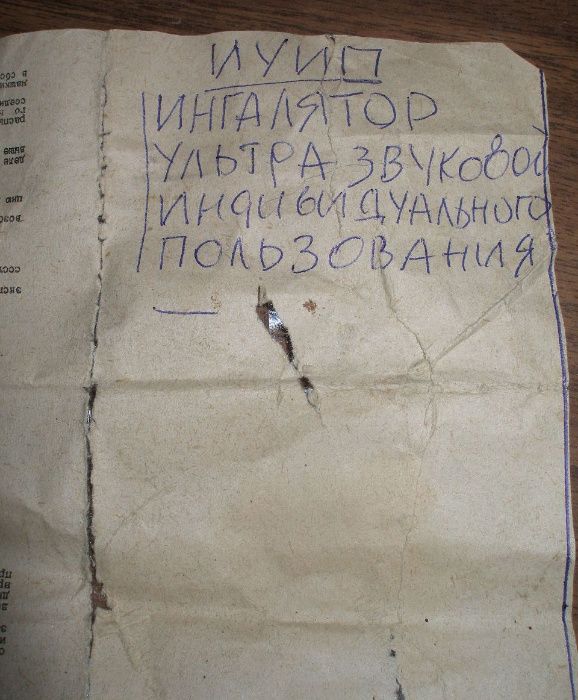 ИУИП
ИНГАЛЯТОР
УЛЬТРА ЗВУКОВОЙ
ИНДИВИДУАЛЬНОГО
ПОЛЬЗОВАНИЯ